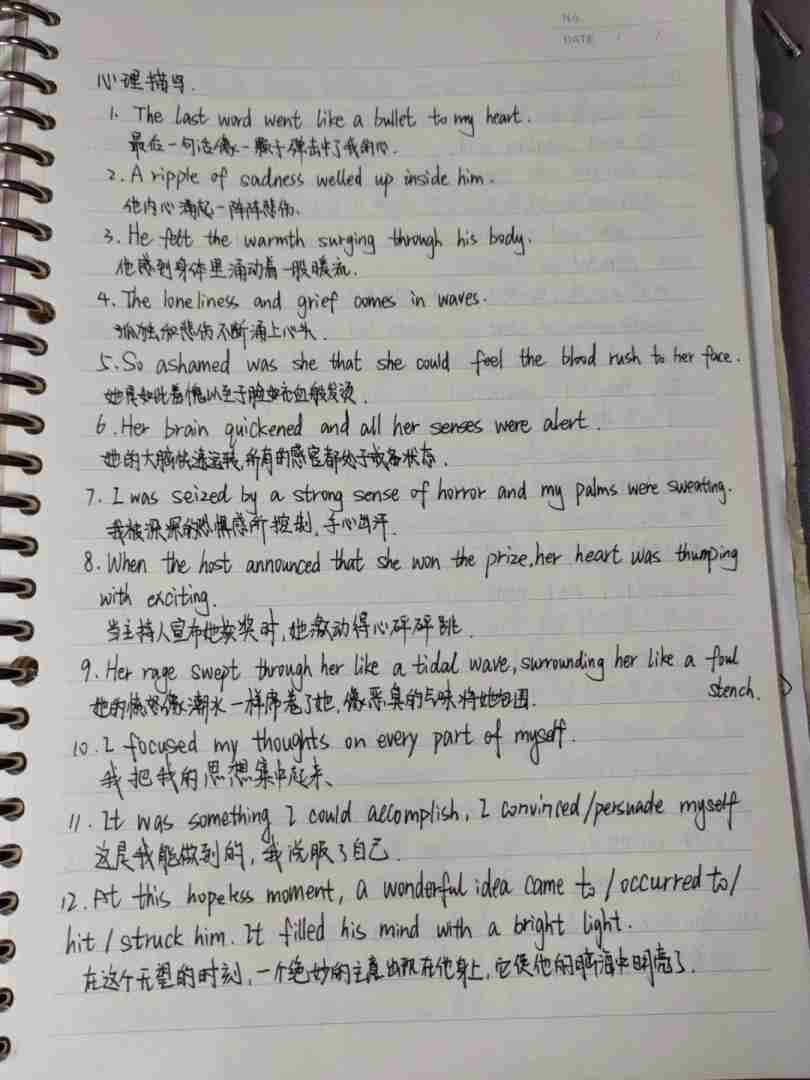 NO.
DATE / /
心理描写.
1. The last word went like a bullet to my heart.
最后一句话像一颗子弹击中了我的心.
2. A ripple of sadness welled up inside him.
他内心涌起一阵阵悲伤.
3. He felt the warmth surging through his body.
他感到身体里涌动着一股暖流.
4. The loneliness and grief comes in waves.
孤独和悲伤不断涌上心头.
5. So ashamed was she that she could feel the blood rush to her face.
她是如此羞愧以至于脸如充血般发烫.
6. Her brain quickened and all her senses were alert.
她的大脑快速运转,所有的感官都处于戒备状态.
7. I was seized by a strong sense of horror and my palms were sweating.
我被深深的恐惧感所控制,手心出汗.
8. When the host announced that she won the prize, her heart was thumping
with exciting.
当主持人宣布她获奖时,她激动得心砰砰跳.
9. Her rage swept through her like a tidal wave, surrounding her like a foul
stench.
她的愤怒像潮水一样席卷了她,像恶臭的气味将她包围.
10. I focused my thoughts on every part of myself.
我把我的思想集中起来、
11. It was something I could accomplish, I convinced/persuade myself
这是我能做到的,我说服了自己.
12. At this hopeless moment, a wonderful idea came to / occurred to /
hit / struck him. It filled his mind with a bright light.
在这个无望的时刻,一个绝妙的主意出现在他身上,它使他的脑海中明亮了.